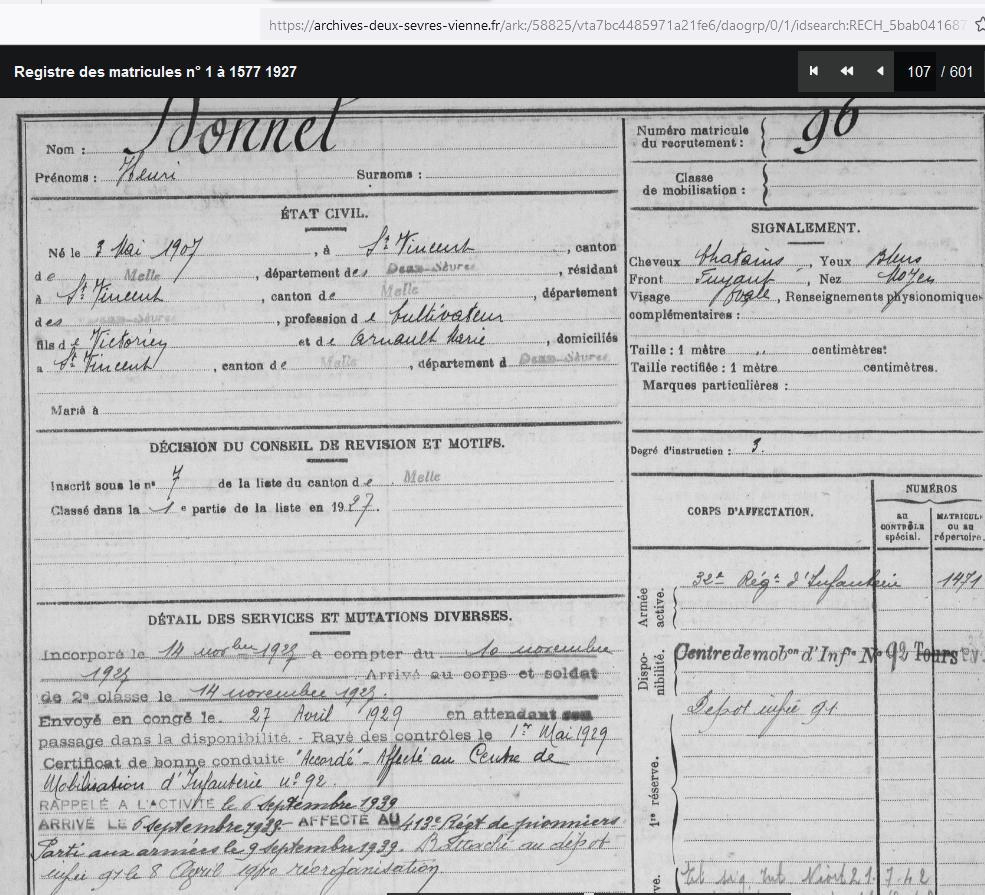 https://archives-deux-sevres-vienne.fr/ark:/58825/vta7bc4485971a21fe6/daogrp/0/1/idsearch:RECH_5bab041687
Registre des matricules n° 1 à 1577 1927
107 / 601
Nom : Bonnet
Prénoms : Henri Surnoms :
ÉTAT CIVIL.
Né le 3 Mai 1907, à St Vincent, canton
de Melle, département des Deux-Sèvres, résidant
à St Vincent, canton de Melle, département
des Deux-Sèvres, profession de Cultivateur
fils de Victorien et de Arnault Marie, domiciliés
à St Vincent, canton de Melle, département d Deux-Sèvres
Marié à
DÉCISION DU CONSEIL DE REVISION ET MOTIFS.
Inscrit sous le n° 7 de la liste du canton de Melle
Classé dans la 1e partie de la liste en 1927.
DÉTAIL DES SERVICES ET MUTATIONS DIVERSES.
Incorporé le 14 novbre 1927 à compter du 10 novembre
1927 Arrivé au corps et soldat
de 2e classe le 14 novembre 1927.
Envoyé en congé le 27 Avril 1929 en attendant son
passage dans la disponibilité. - Rayé des contrôles le 1er Mai 1929
Certificat de bonne conduite "Accordé" - Affecté au Centre de
Mobilisation d'Infanterie n° 92.
RAPPELÉ A L'ACTIVITÉ le 6 Septembre 1939
ARRIVÉ LE 6 septembre 1939 - AFFECTÉ AU 413e Régt de pionniers
Parti aux armées le 9 septembre 1939. Rattaché au dépôt
infie 91 le 8 April 1940 réorganisation
Numéro matricule
du recrutement : 96
Classe
de mobilisation :
SIGNALEMENT.
Cheveux chatains, Yeux bleus
Front Fuyant, Nez Moyen
Visage Ovale, Renseignements physionomiques
complémentaires :
Taille : 1 mètre " centimètres.
Taille rectifiée : 1 mètre centimètres.
Marques particulières :
Degré d'instruction : 3.
CORPS D'AFFECTATION.
NUMÉROS
au
CONTRÔLE
spécial.
MATRICUL
ou au
répertoire.
Armée
active.
32e Régt d'Infanterie 1471
Dispo-
nibilité.
Centre de mobon d'Infie N° 92 Tours
1re réserve.
Dépot infie 91
ve.
Niort 21. 7.42